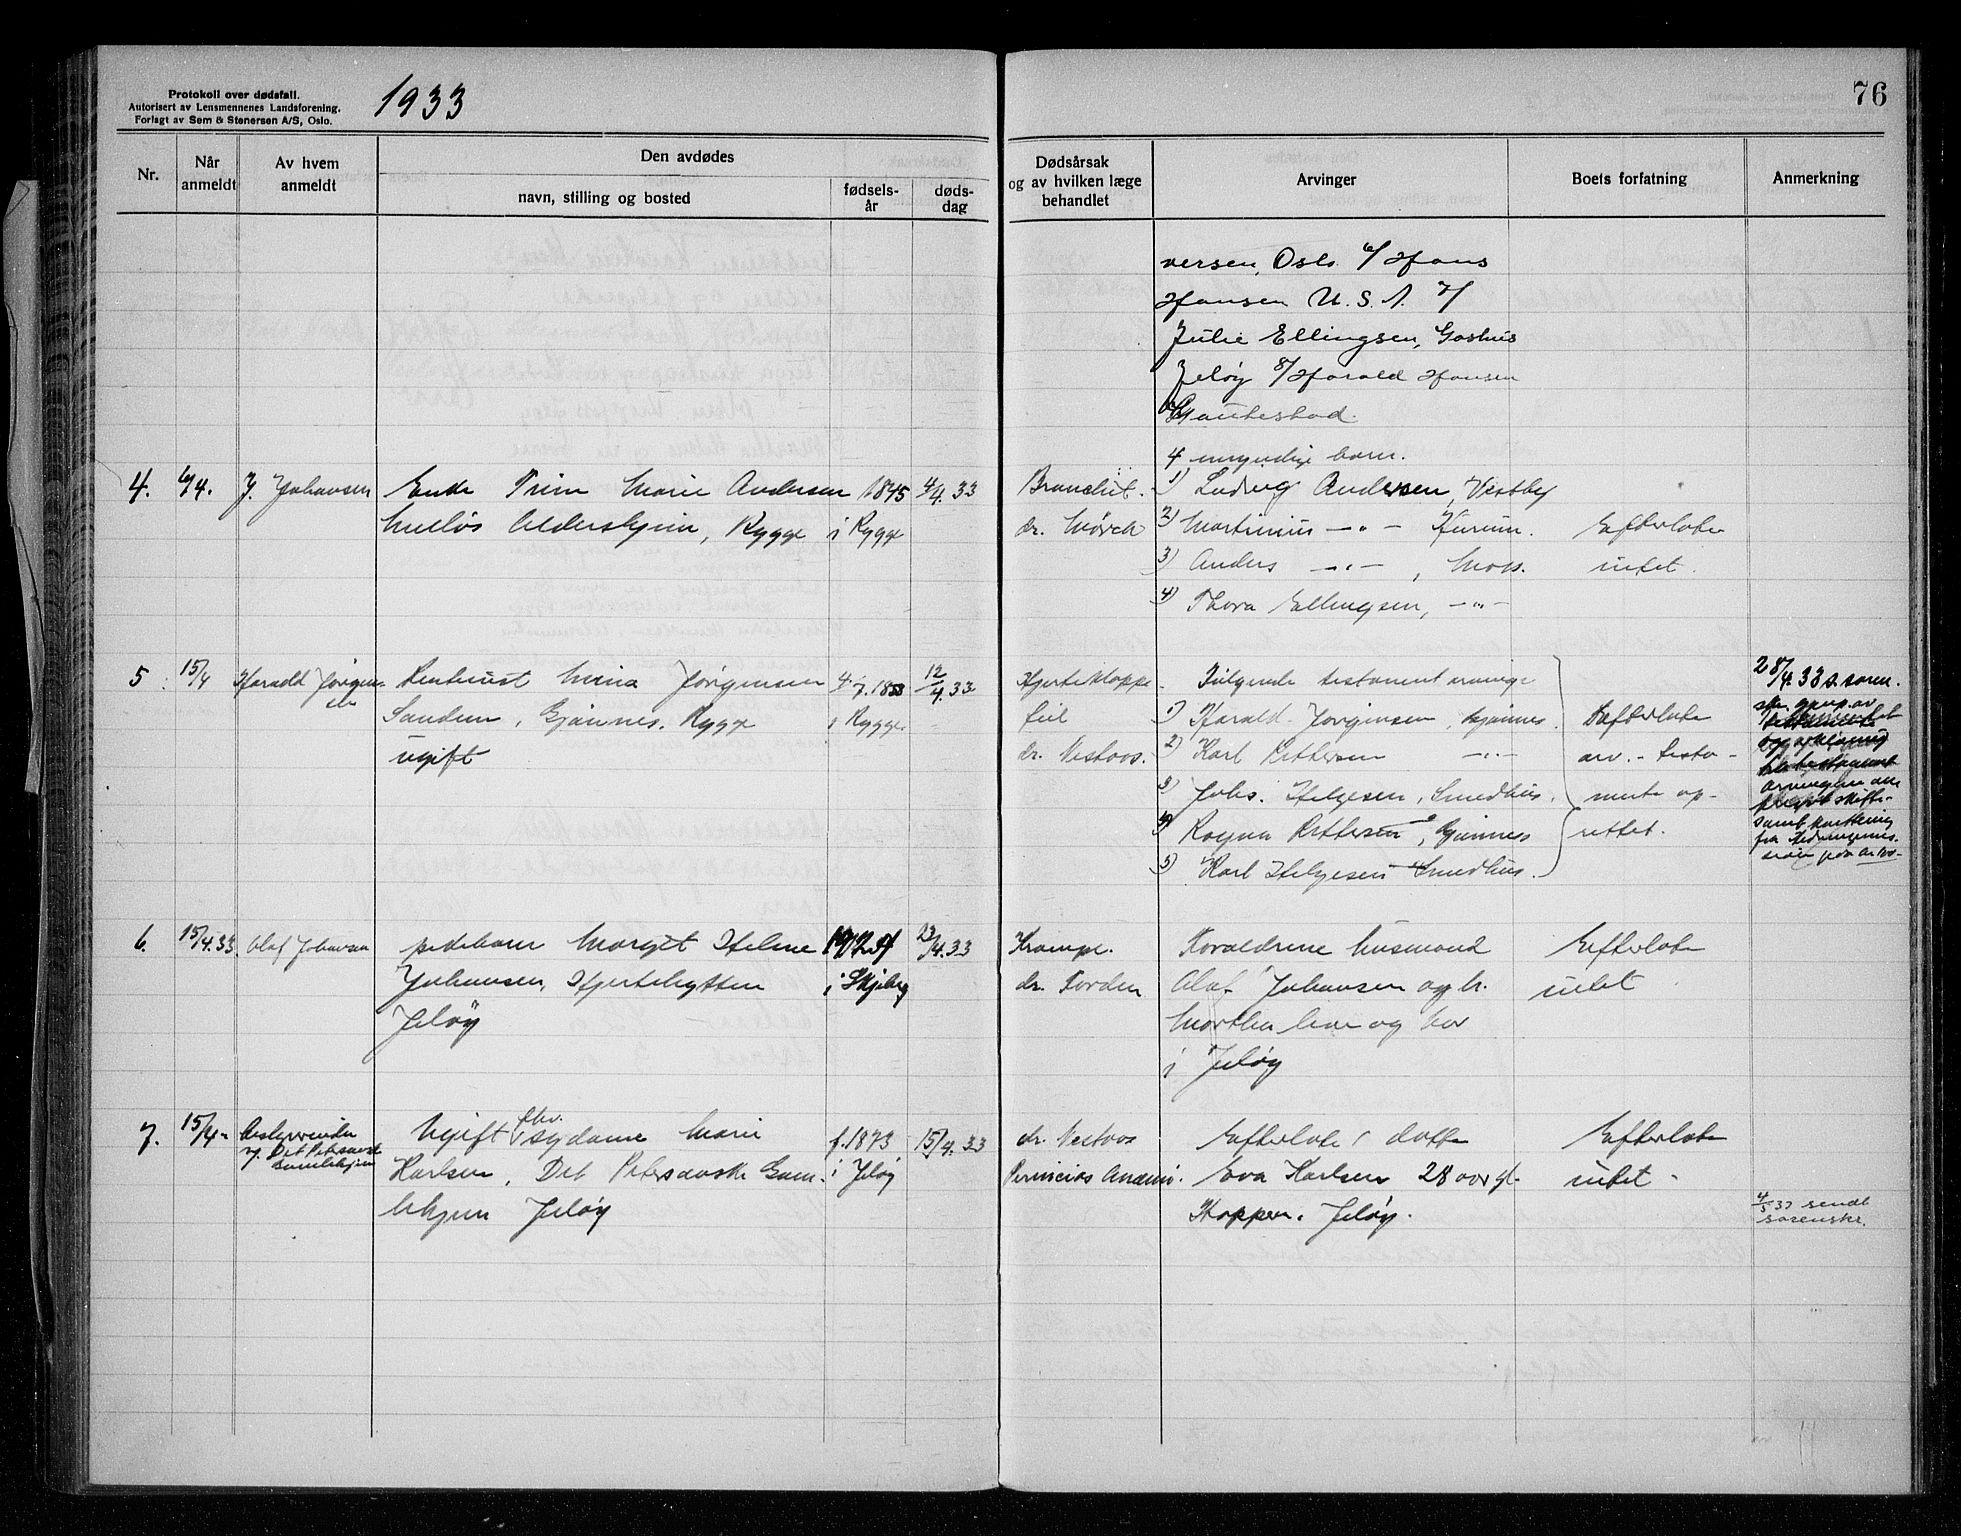 Protokoll over dødsfall.
Autorisert av Lensmennenes Landsforening.
Forlagt av Sem & Stenersen A/S, Oslo.
1933
76
Nr.
Når anmeldt
Av hvem anmeldt
Den avdødes
navn, stilling og bosted
fødsels-
år
døds-
dag
Dødsårsak
og av hvilken læge
behandlet
Arvinger
Boets forfatning
Anmerkning
versen, Oslo. 6/ Hans
Hansen U.S.A. 7/
Julie Ellingsen, Goshus
Jeløy 8/ Harald Hansen
4 umyndige barn.
4. 6/4. J. Johansen
Enke Trine Marie Andersen
Melløs Aldershjem, Rygge
1845
i Rygge
4/4. 33
dr. Mørch
1) Ludvig Andersen, Vestby
2) Martinius —"— Hurum.
3) Anders —"—, Moss.
4) Thora Ellingsen, —"—
Efterlate
intet.
5. 15/4 Harald Jørgen-
sen
Mina Jørgensen
Sanden, Gjønnes, Rygge
ugift
4/7. 1853
i Rygge.
12/4. 33
Hjerteklappe-
feil
dr. Vestaas.
Følgende testament arvinge
1) Harald Jørgensen, Gjønnes.
2) Karl Pettersen —"—
3) Johs. Helgesen, Smedhus.
4) Ragna Pettersen, Gjønnes
5) Karl Helgesen Smedhus.
Efterlate
arv. - testa-
mente op-
rettet.
28/4. 33 s. soren.
6. 15/4. 33. Olaf Johansen
pedebarn Margit Helene
Johansen, Hjertehytten
Jeløy
i Skjeberg
Krampe.
dr. Torden
Foreldrene husmand
Olaf Johansen og h.
Martha leve og bor
i Jeløy
Efterlate
intet
7. 15/4- Bestyrerinden
v. Det Petersonske
Gamlehjem
Ugift fhv. sydame Marie
Karlsen, Det Petersonske Gam-
lehjem Jeløy
f. 1873
i Jeløy
15/4. 33
dr. Vestaas
Perniciøs Anæmi.
Efterlate 1 datter
Eva Karlsen 28 aar gl.
Koppen. Jeløy.
Efterlate
intet -
4/5 33 sendt
sorenskr.